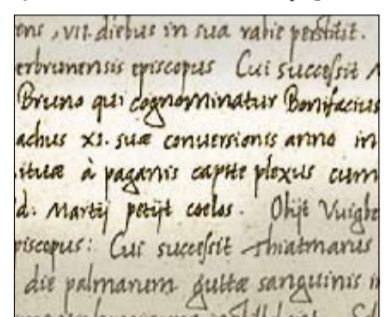 ens, vii. diebus in sua rabie perstitit.
erbrunensis episcopus Cui successit
Bruno qui cognominatur Bonifacius
achus xi. suæ conuersionis anno in
ituæ à paganis capite plexus cum
d: Martij petijt coelos. Obijt Vuigbe
piscopus: Cui successit Thiatmarus
die palmarum guttæ sanguinis i